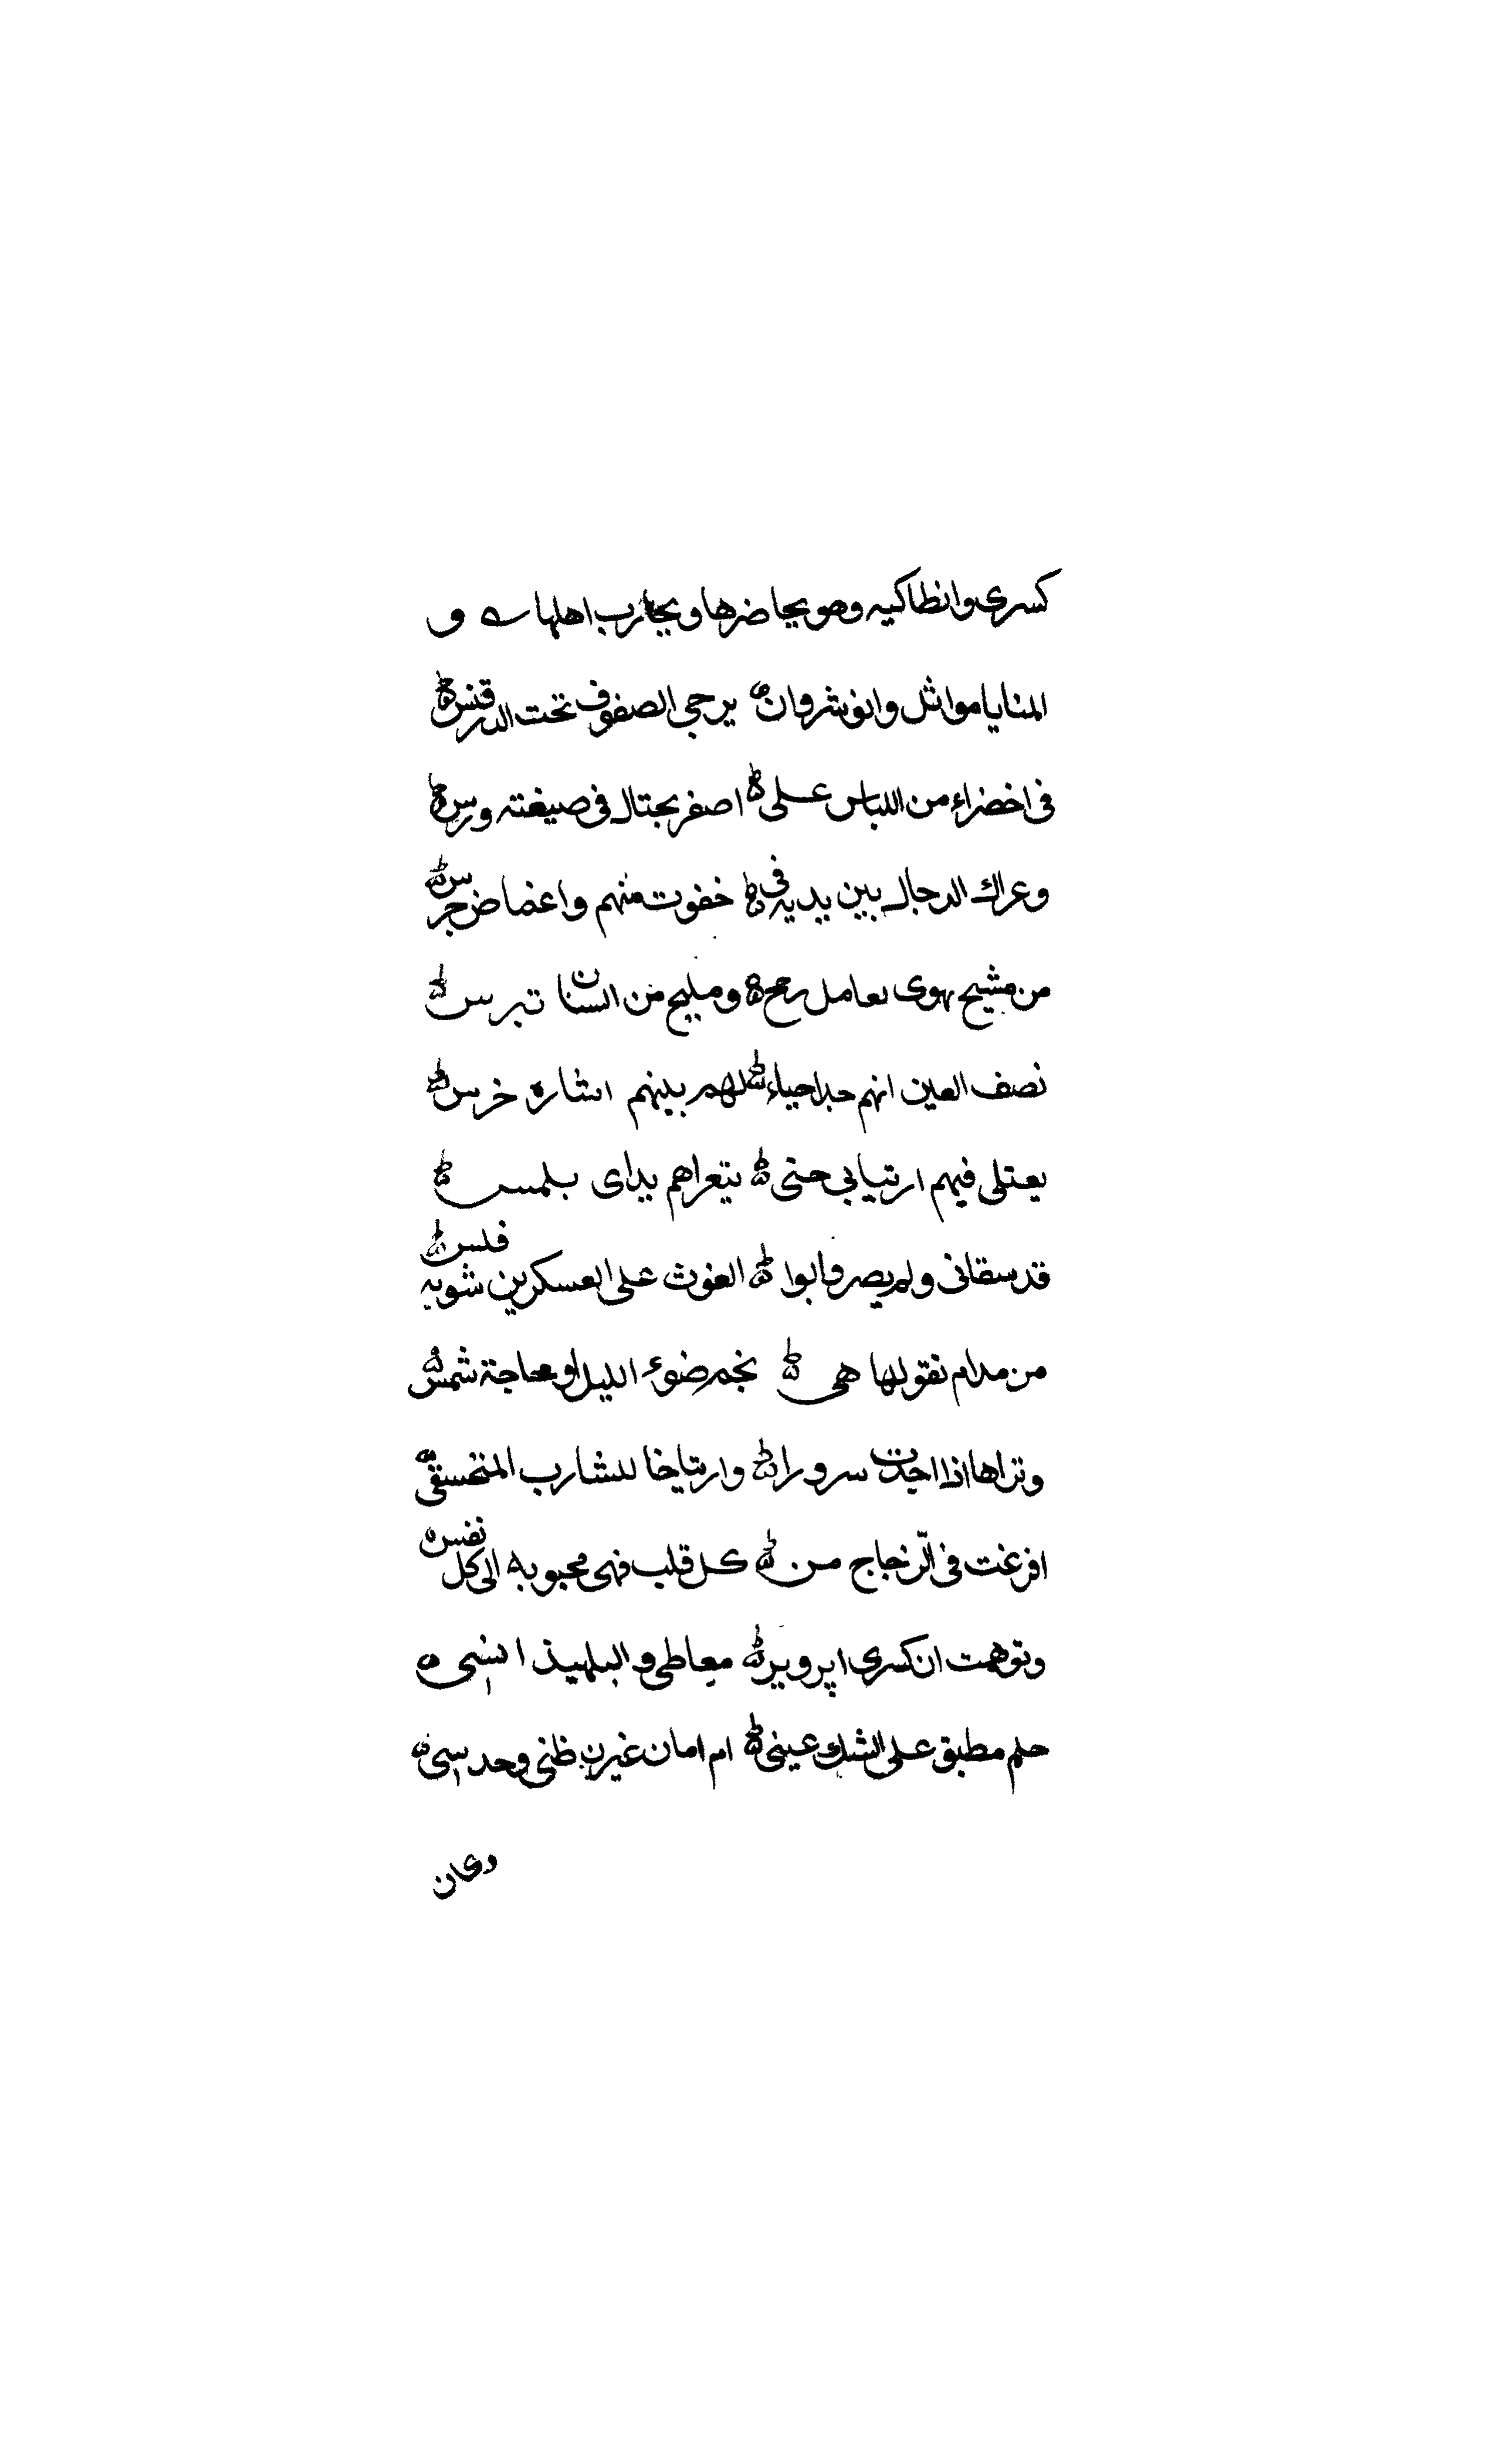 كسرى وانطاكيه وهو يحاضرها ويحارب اهلها و
المنايا مواثل وانوشروان يرجى الصفوف تحت الدرقنس
فى اخضراء من اللباس على اصفر يجتال فى صيغته ورس
وعراك الدجال بين يديه فى خفوت منهم واغماض جرس
من مشيح يهوى بعامل رمح ومليح من السنان تبرس
نصف العين انهم جد احياء لهم بينهم اشاره خرس
يعتلى فيهم ارتيابي حتى يتعراهم يداى بلمس
قد سقانى ولم يصر وابوا الغوث على العسكرين شوبه فلس
من مدام نقولها هى نجم ضوء الليل او مجاجة شمس
وتراها اذا اجدت سرورا وارتياخا للشارب المتحسى
افرغت فى الزجاج من كل قلب فهى محبوبه الى كل نفس
وتوهمت ان كسرى اپرويز معاطى والبلهيذ انسى
حلم مطبق على الشك عينى ام امان غيرن ظنى وحدسى